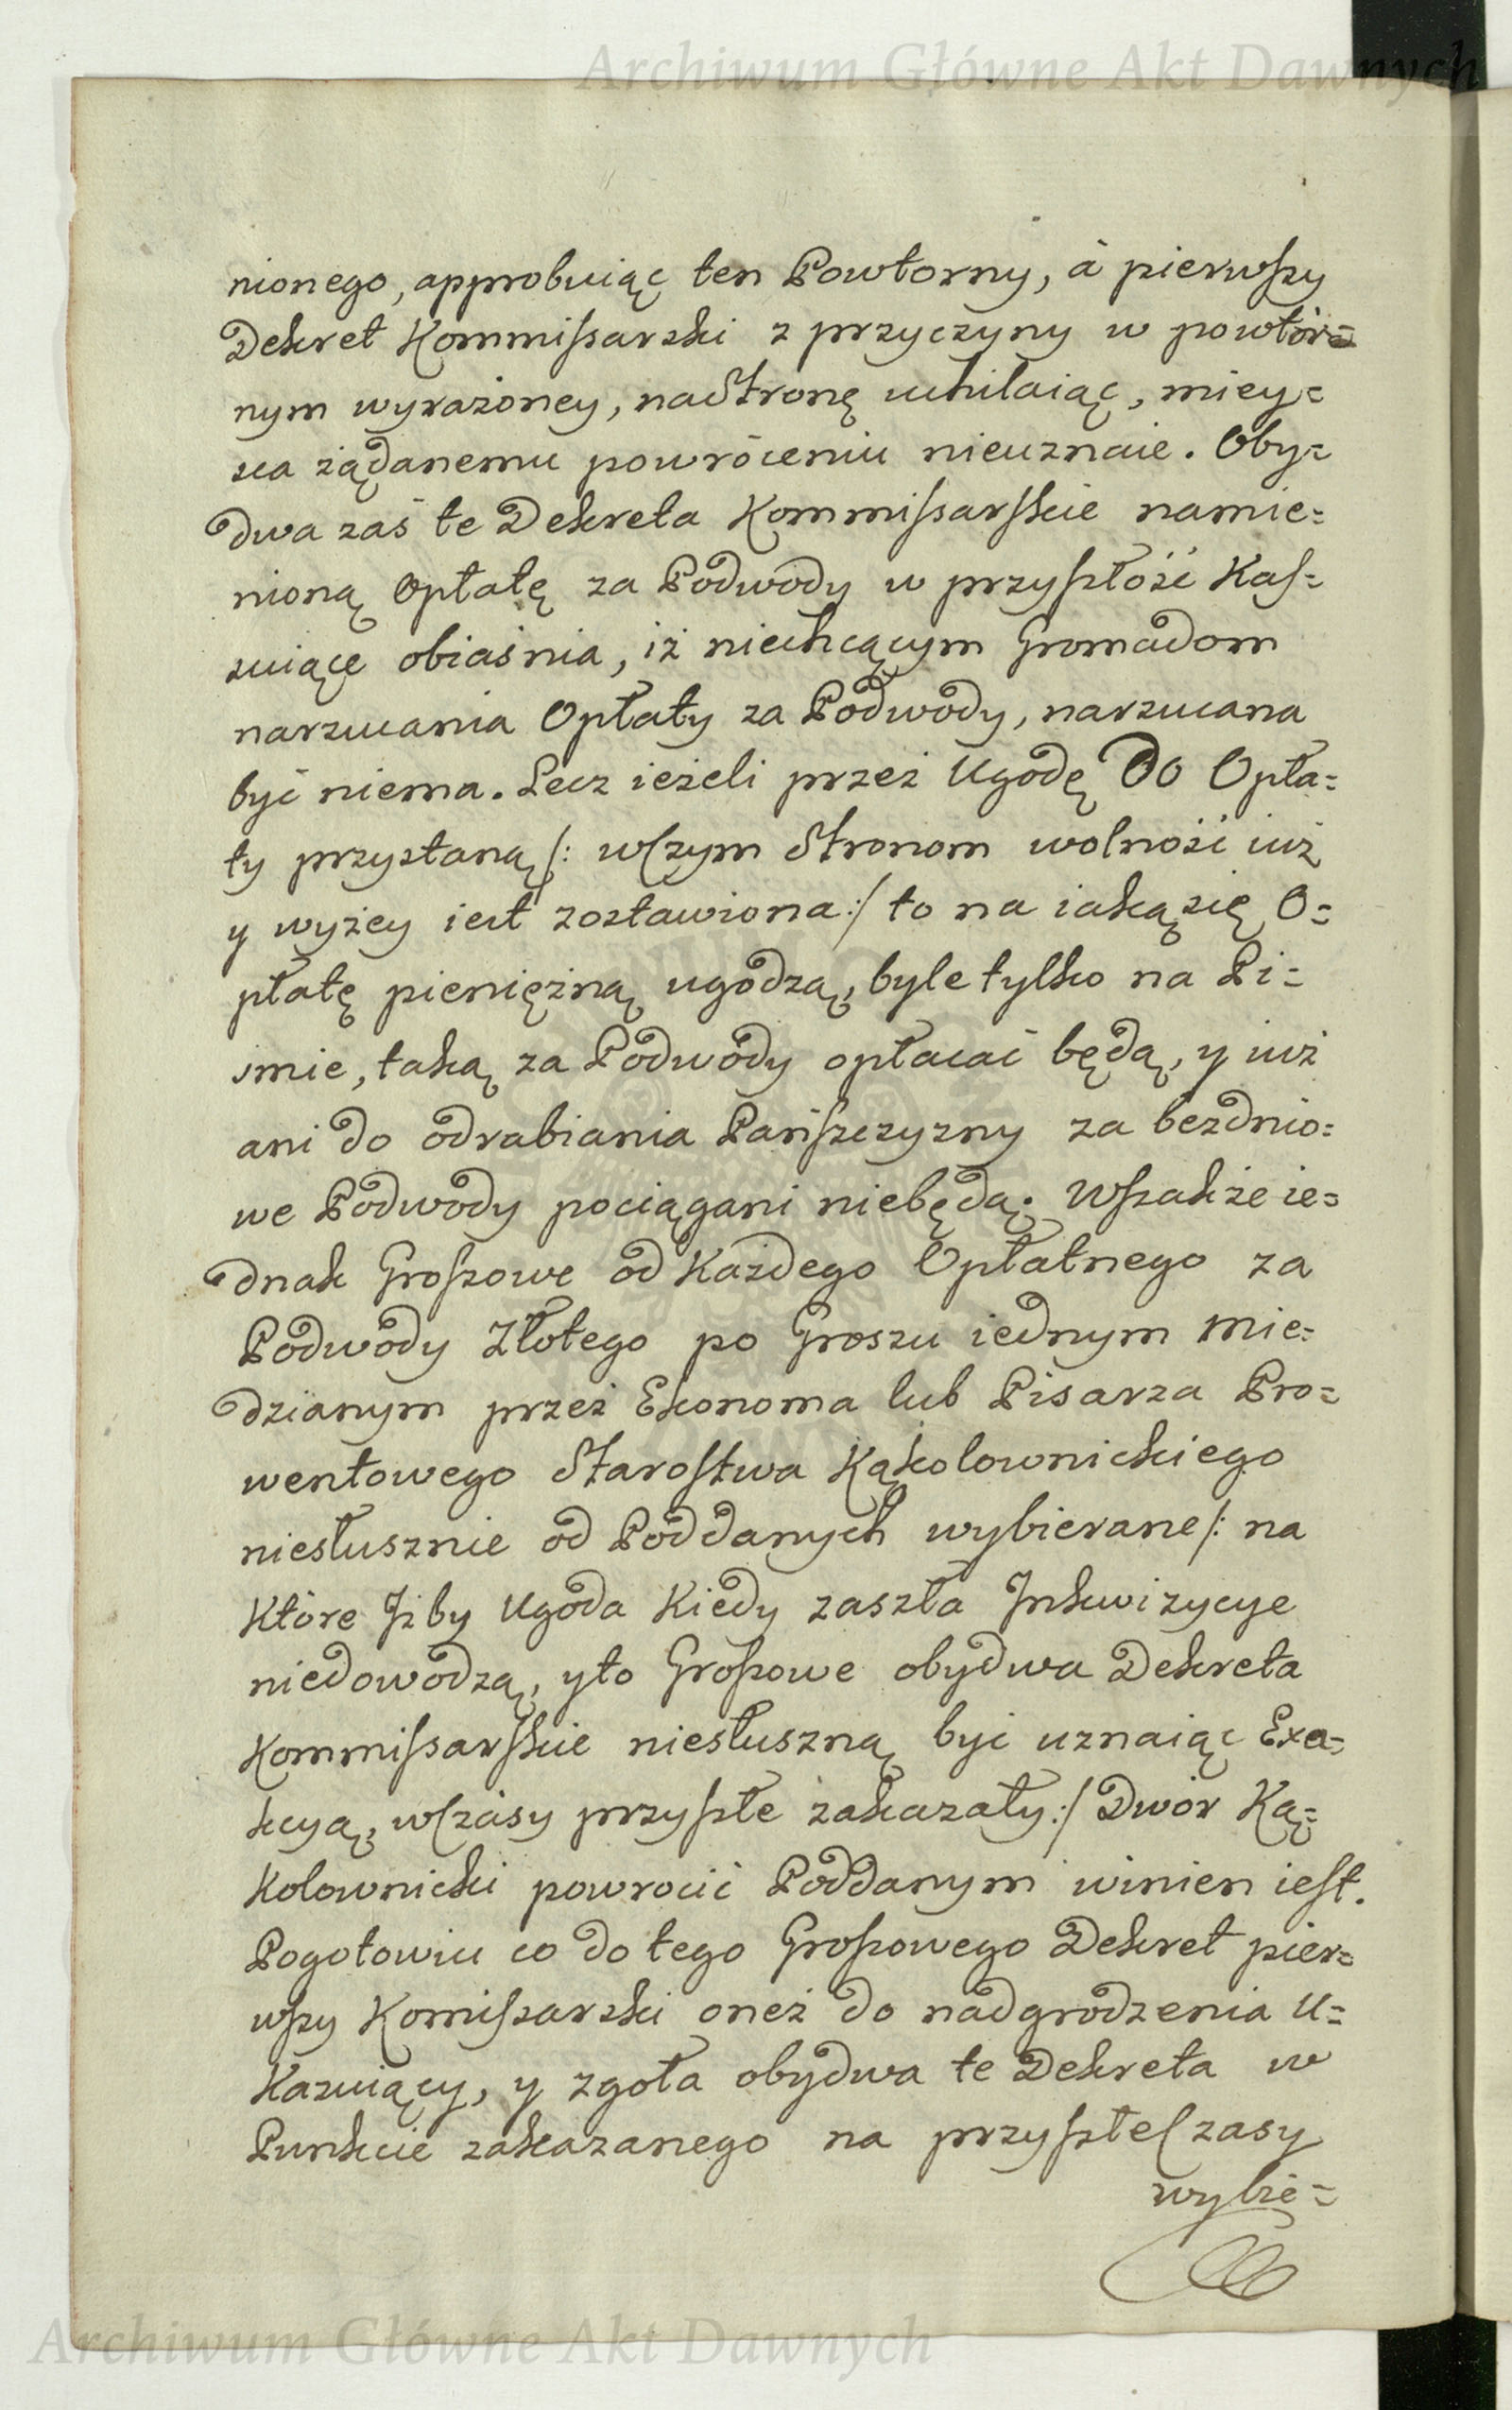 Archiwum Główne Akt Dawnych
nionego, approbuiąc ten Powtorny, à pierwszy
Dekret Kommissarski z przyczyny w powtór=
nym wyrażoney, na Stronę uchilaiąc, miey=
sca żądanemu powróceniu nieuznaie. Oby=
dwa zaś te Dekreta Kommissarskie namie=
nioną Opłatę za Podwody w przyszłość Kas=
suiące obiaśnia, iż niechcącym Gromadom
narzucania Opłaty za Podwody, narzucana
być niema. Lecz ieżeli przez Ugodę do Opła=
ty przystaną /: w czym Stronom wolność iuż
y wyżey iest zostawiona :/ to na iaką się O=
płatę pieniężną ugodzą, byle tylko na Pi=
śmie, taką za Podwody opłacać będą, y iuż
ani do odrabiania Pańszczyzny za bezdnio=
we Podwody pociągani niebędą. Wszakże ie=
dnak Groszowe od Każdego Opłatnego za
Podwody Złotego po Groszu iednym mie=
dzianym przez Ekonoma lub Pisarza Pro=
wentowego Starostwa Kąkolownickiego
niesłusznie od Poddanych wybierane /: na
Które Jżby Ugoda Kiedy zaszła Jnkwizycye
niedowodzą, y to Groszowe obydwa Dekreta
Kommissarskie niesłuszną być uznaiąc Exa=
kcyą, w czasy przyszłe zakazały :/ Dwór Ką=
Kolownicki powrocić Poddanym winien iest.
Pogotowiu co do tego Groszowego Dekret pier=
wszy Komissarski oneż do nadgrodzenia U=
Kazuiący, y zgoła obydwa te Dekreta w
Punkcie zakazanego na przyszłe Czasy
wybie=
Archiwum Główne Akt Dawnych